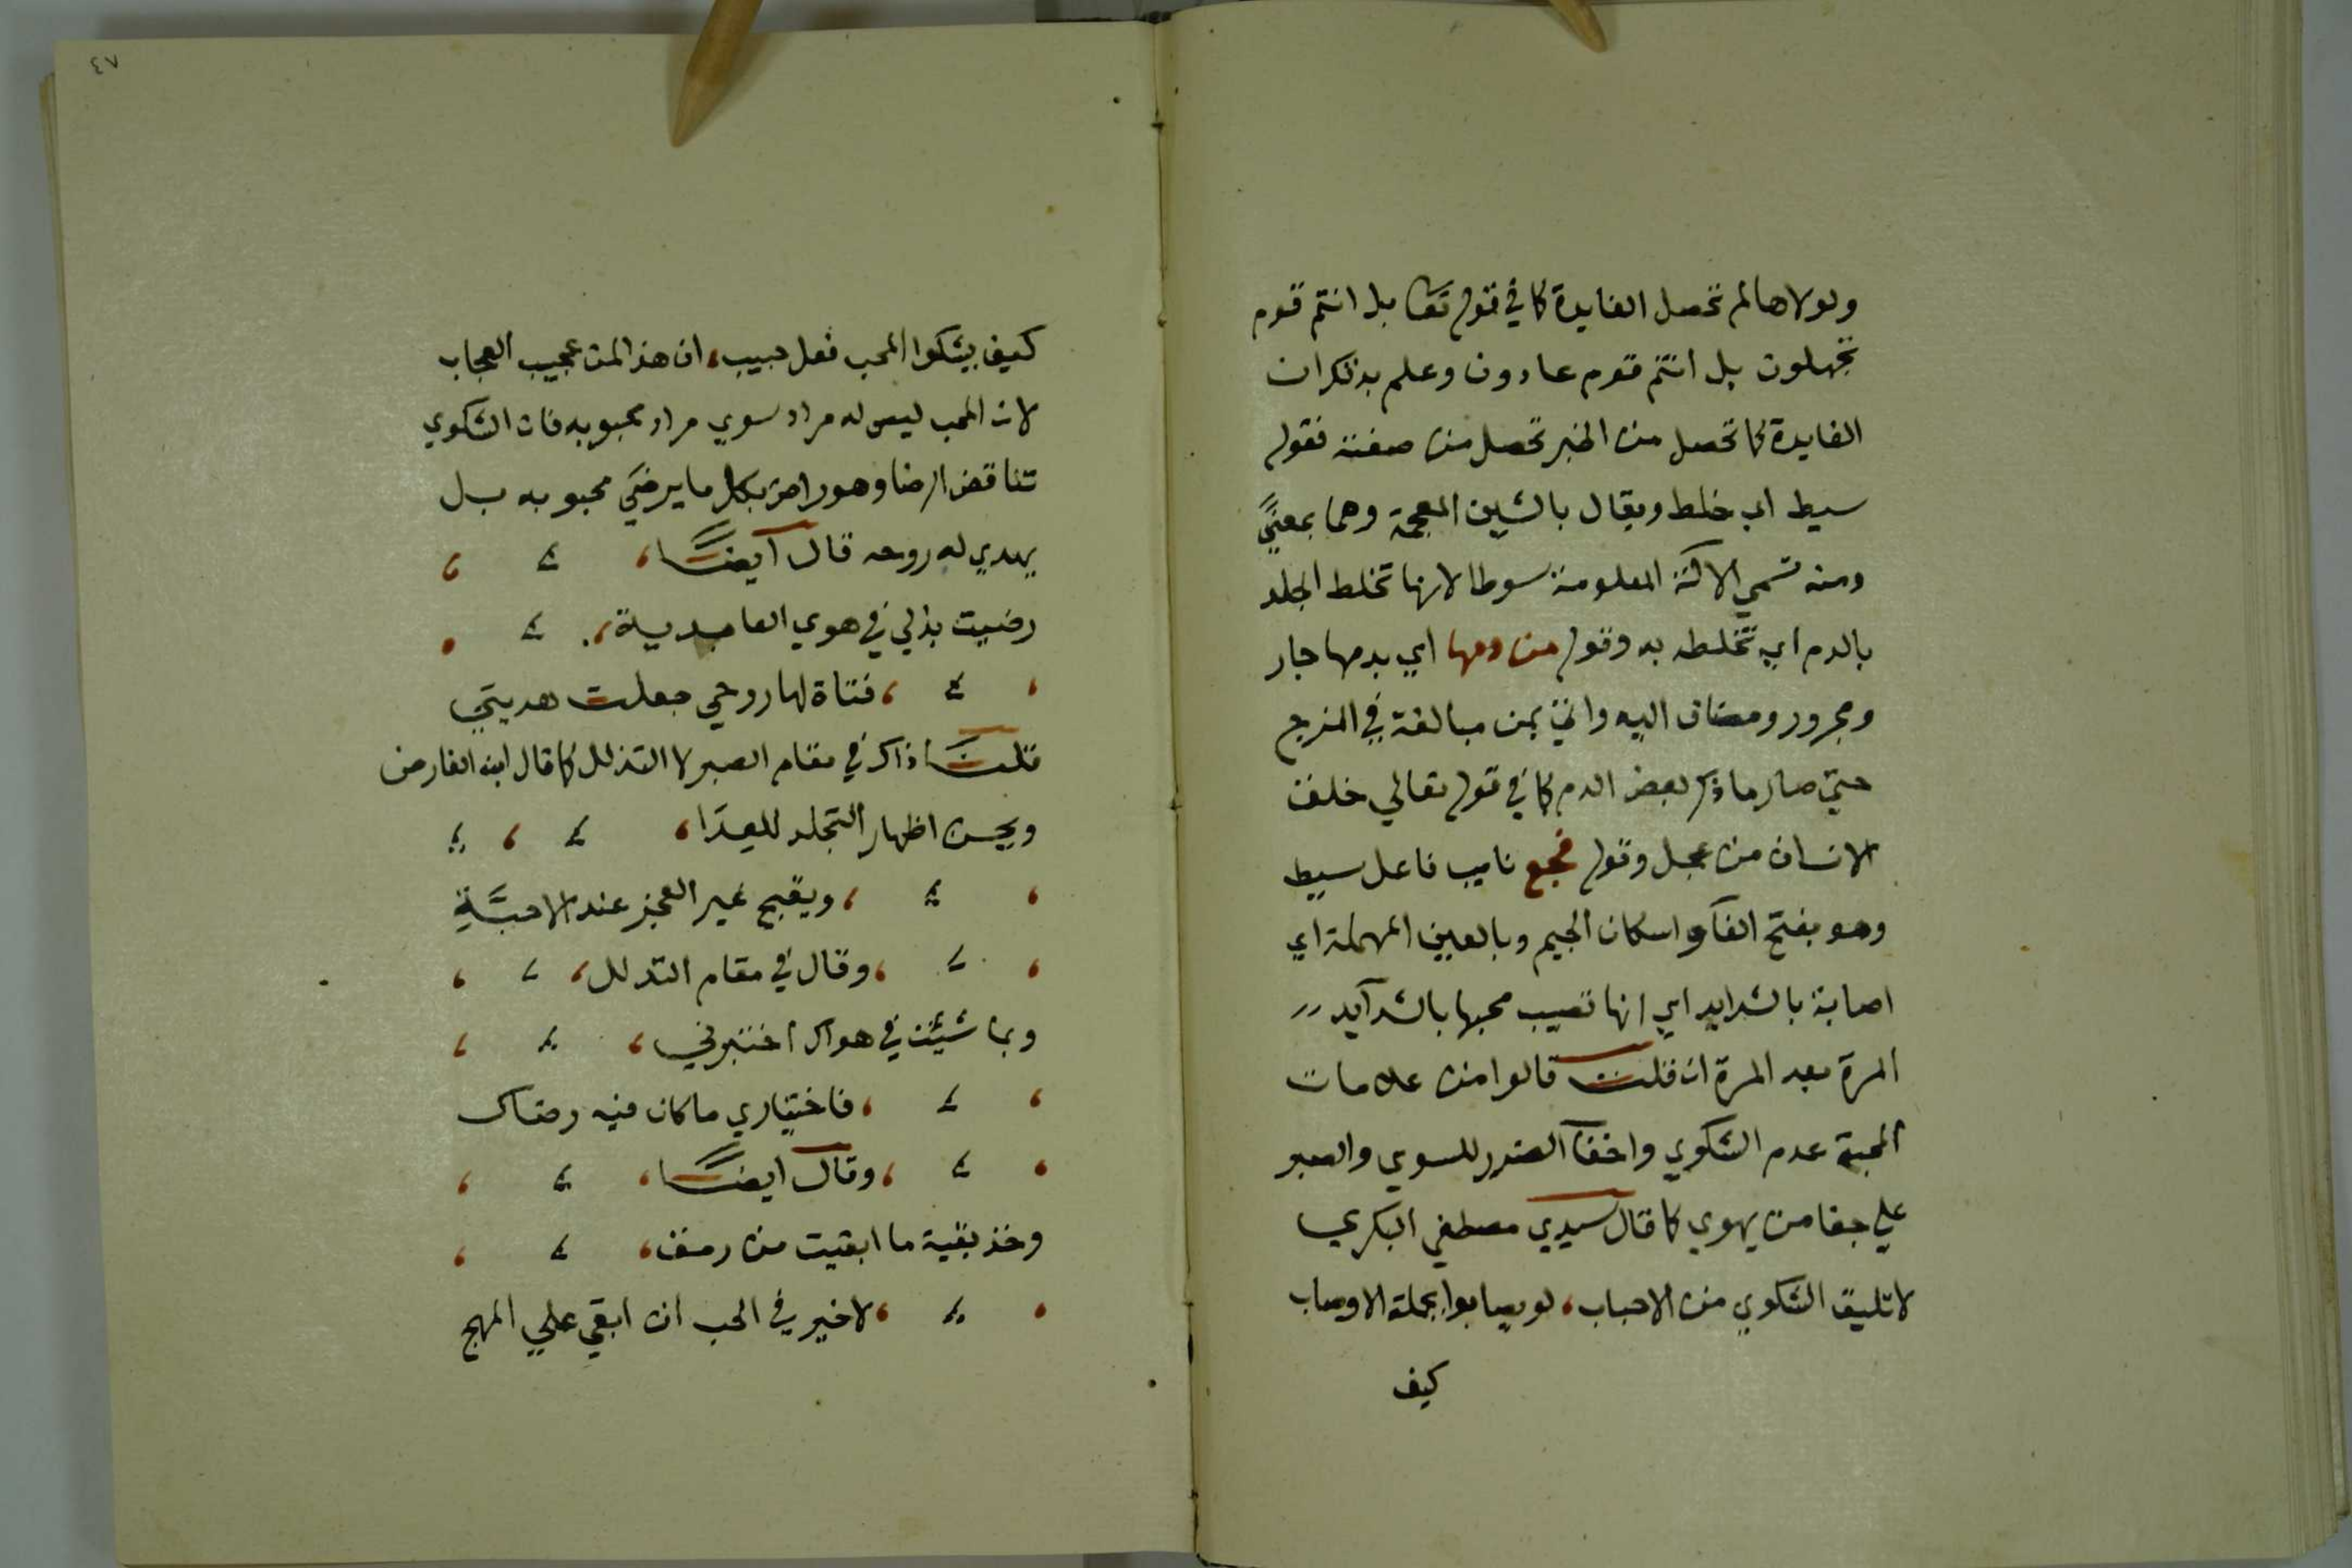 ولولاها لم تحصل الفايدة كما في قوله تعا بل انتم قوم
تجهلون بل انتم قوم عادون وعلم بذلك ان
الفايدة كما تحصل من الخبر تحصل من صفته فقوله
سيط اي خلط ويقال بالشين المعجمة وهما بمعنيً
ومنه تسمي الالة المعلومة سوطا لانها تخلط الجلد
بالدم اي تخلطه به وقوله من دمها اي بدمها جار
ومجرور ومضاف اليه واتي بمن مبالغة في المزج
حتي صار ما ذكر بعض الدم كما في قوله تعالي خلق
الانسان من عجل وقوله فجع نايب فاعل سيط
وهو بفتح الفآ واسكان الجيم وبالعين المهملة اي
اصابة بالشدايد اي انها تصيب محبها بالشدآيد
المرة بعد المرة ان قلت قالوا من علامات
المحبة عدم الشكوي واخفآ الضرر للسوي والصبر
علي جفا من يهوي كما قال سيدي مصطفي البكري
لا تليق الشكوي من الاحباب، لو يصابوا بجملة الاوصاب
كيف
٤٧
كيف يشكوا المحب فعل حبيب، ان هذا لمن عجيب العجاب
لان المحب ليس له مراد سوي مراد محبوبه فان الشكوي
تناقض الرضا وهو راض بكل ما يرضي محبوبه بل
يهدي له روحه قال آيضًا،
رضيت بذلي في هوي العامدية،
، فتاة لها روحي جعلت هديتي
قلت ذاك في مقام الصبر لا التذلل كما قال ابن الفارض
ويحسن اظهار التجلد للعدَا،
، ويقبح غير العجز عند الاحبَّةِ
، وقال في مقام التدلل،
وبما شئت في هواك اختبرني،
، فاختياري ما كان فيه رضاك
، وقال ايضًا،
وخذ بقية ما ابقيت من رمق،
، لا خير في الحب ان ابقي علي المهج